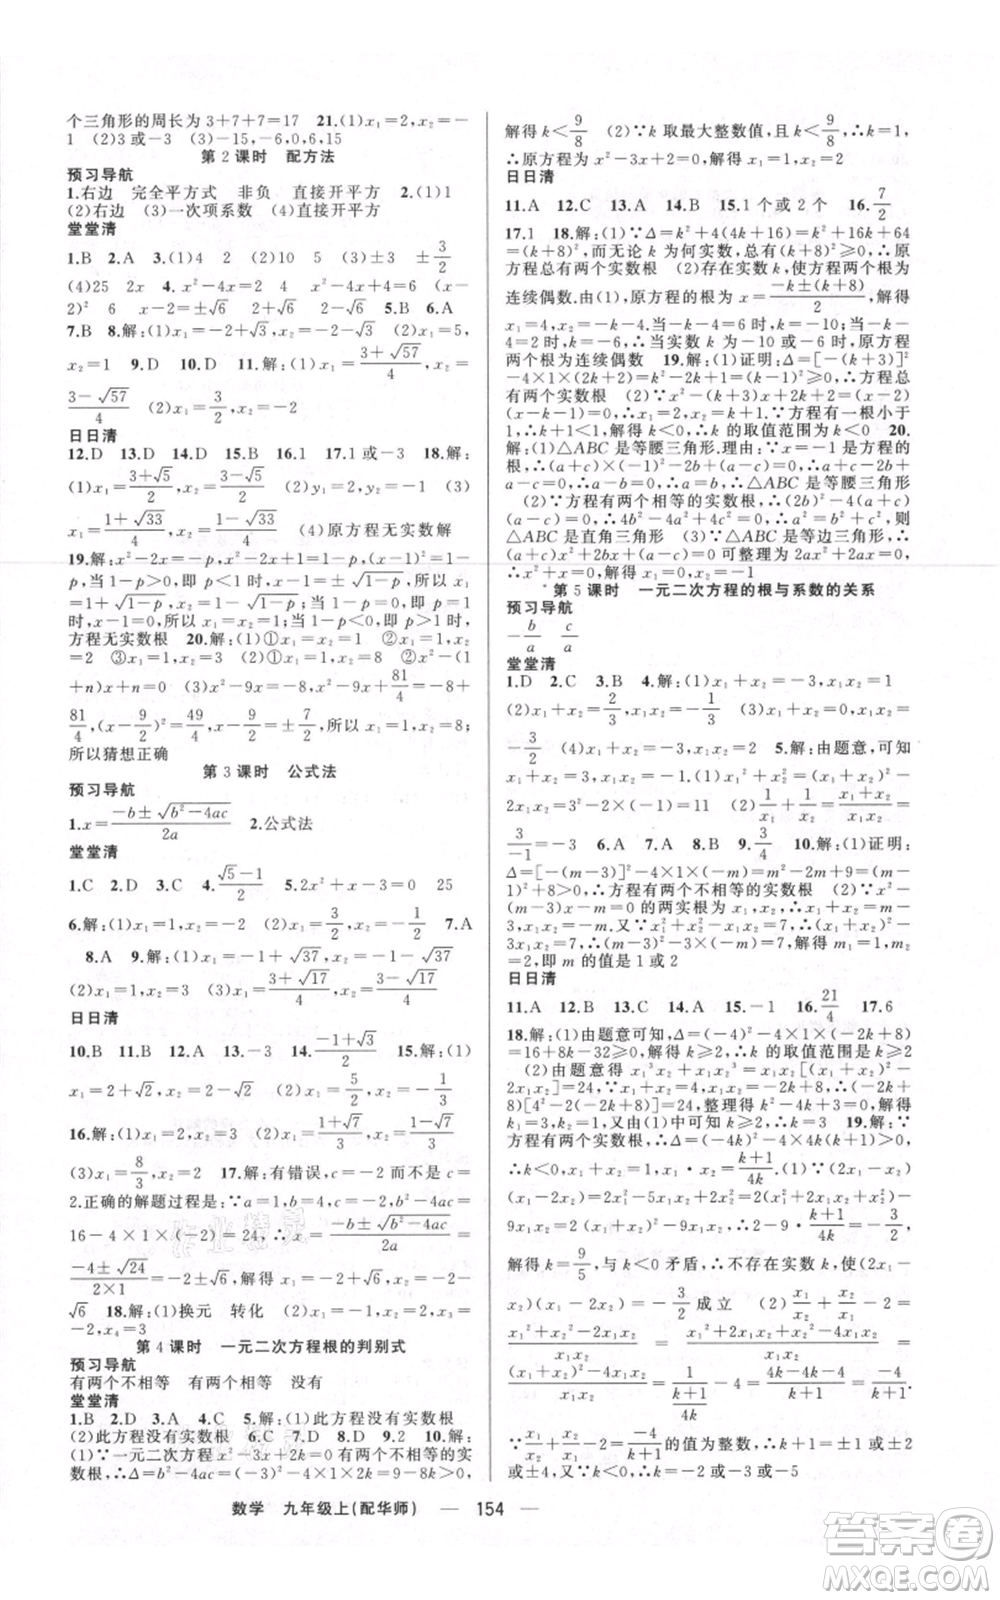 个三角形的周长为 3+7+7=17　21.(1)x₁=2,x₂=-
1　(2)3 或-3　(3)-15,-6,0,6,15
第 2 课时　配方法
预习导航
1.右边　完全平方式　非负　直接开平方　2.(1)1
(2)右边　(3)一次项系数　(4)直接开平方
堂堂清
1.B　2.A　3.(1)4　2　(2)16　4　(3)±3　±3/2
(4)25　2x　4.x²-4x=2　x²-4x+4=6　(x-
2)²　6　x-2=±√6　2+√6　2-√6　5.B　6.A
7.B　8.解:(1)x₁=-2+√3,x₂=-2-√3　(2)x₁=5,
x₂=1　9.D　10.D　11.解:(1)x₁=(3+√57)/4,x₂=
(3-√57)/4　(2)x₁=3/2,x₂=-2
日日清
12.D　13.D　14.D　15.B　16.1　17.1 或-3　18.解:
(1)x₁=(3+√5)/2,x₂=(3-√5)/2　(2)y₁=2,y₂=-2　(3)
x₁=(1+√33)/4,x₂=(1-√33)/4　(4)原方程无实数解
19.解:x²-2x=-p,x²-2x+1=1-p,(x-1)²=1-
p.当 1-p>0 时,x-1=±√(1-p),所以 x₁=1+
√(1-p),x₂=1-√(1-p);当 1-p=0 即 p=1
时,x-1=0,所以 x₁=x₂=1;当 1-p<0 即 p>1 时,
方程无实数根　20.解:(1)①x₁=x₂=1　②x₁=1,x₂
=2　③x₁=1,x₂=3　(2)①x₁=1,x₂=8　②x²-(1
+n)x+n=0　(3)x²-9x=-8,x²-9x+81/4=-8+
81/4,(x-9/2)²=49/4,x-9/2=±7/2,所以 x₁=1,x₂=8;
所以猜想正确
第 3 课时　公式法
预习导航
1.x=(-b±√(b²-4ac))/2a　2.公式法
堂堂清
1.C　2.D　3.C　4.(√5-1)/2　5.2x²+x-3=0　25
6.解:(1)x₁=0,x₂=-3/2　(2)x₁=3/2,x₂=-1/2　7.A
8.A　9.解:(1)x₁=-1+√37,x₂=-1-√37
(2)x₁=x₂=1/3　(3)x₁=(3+√17)/4,x₂=(3-√17)/4
日日清
10.B　11.B　12.A　13.-3　14.(-1+√3)/2　15.解:(1)
x₁=2+√2,x₂=2-√2　(2)x₁=5/2,x₂=1
16.解:(1)x₁=x₂=√2　(2)x₁=(1+√7)/3,x₂=(1-√7)/3
(3)x₁=8/3,x₂=0　17.解:有错误,c=-2,而不是 c=
2.正确的解题过程是:∵a=1,b=4,c=-2,∴b²-4ac=
16-4×1×(-2)=24,∴x=(-b±√(b²-4ac))/2a=
(-4±√24)/(2×1)=-2±√6,解得 x₁=-2+√6,x₂=-2-
√6　18.解:(1)换元　转化　(2)x₁=-1,x₂=2,x₃=
-2,x₄=3
第 4 课时　一元二次方程根的判别式
预习导航
有两个不相等　有两个相等　没有
堂堂清
1.B　2.D　3.A　4.C　5.解:(1)此方程没有实数根
(2)此方程没有实数根　6.C　7.C　8.D　9.2　10.解:
(1)∵一元二次方程 x²-3x+2k=0 有两个不相等的实
数根,∴Δ=b²-4ac=(-3)²-4×1×2k=9-8k>0,
解得 k<9/8　(2)∵k 取最大整数值,且 k<9/8,∴k=1,
∴原方程为 x²-3x+2=0,解得 x₁=1,x₂=2
日日清
11.A　12.C　13.A　14.A　15.1 个或 2 个　16.7/2
17.1　18.解:(1)∵Δ=k²+4(4k+16)=k²+16k+64
=(k+8)²,而无论 k 为何实数,总有(k+8)²≥0,∴原
方程总有两个实数根　(2)存在实数 k,使方程两根为
连续偶数.由(1),原方程的根为 x=(-k±(k+8))/2,解得
x₁=4,x₂=-k-4.当-k-4=6 时,k=-10;当-k-
4=2 时,k=-6,∴当实数 k 为-10 或-6 时,原方程
两个根为连续偶数　19.解:(1)证明:Δ=[-(k+3)]²
-4×1×(2k+2)=k²-2k+1=(k-1)²≥0,∴方程总
有两个实数根　(2)∵x²-(k+3)x+2k+2=(x-2)
(x-k-1)=0,∴x₁=2,x₂=k+1.∵方程有一根小于
1,∴k+1<1,解得 k<0,∴k 的取值范围为 k<0　20.
解:(1)△ABC 是等腰三角形.理由:∵x=-1 是方程的
根,∴(a+c)×(-1)²-2b+(a-c)=0,∴a+c-2b+
a-c=0,∴a-b=0,∴a=b,∴△ABC 是等腰三角形
(2)∵方程有两个相等的实数根,∴(2b)²-4(a+c)
(a-c)=0,∴4b²-4a²+4c²=0,∴a²=b²+c²,则
△ABC 是直角三角形　(3)∵△ABC 是等边三角形,
∴(a+c)x²+2bx+(a-c)=0 可整理为 2ax²+2ax=
0,∴x²+x=0,解得 x₁=0,x₂=-1
*第 5 课时　一元二次方程的根与系数的关系
预习导航
-b/a　c/a
堂堂清
1.D　2.C　3.B　4.解:(1)x₁+x₂=-3,x₁x₂=1
(2)x₁+x₂=2/3,x₁x₂=-1/3　(3)x₁+x₂=0,x₁x₂=
-3/2　(4)x₁+x₂=2,x₁x₂=0　5.解:由题意,可知
x₁+x₂=3,x₁x₂=-1.(1)x₁²+x₂²=(x₁+x₂)²-
2x₁x₂=3²-2×(-1)=11　(2)1/x₁+1/x₂=(x₁+x₂)/x₁x₂=
3/-1=-3　6.A　7.A　8.B　9.3/4　10.解:(1)证明:
Δ=[-(m-3)]²-4×1×(-m)=m²-2m+9=(m-
1)²+8>0,∴方程有两个不相等的实数根　(2)∵方程
x²-(m-3)x-m=0 的两实根为 x₁,x₂,∴x₁+x₂=m-
3,x₁x₂=-m.又∵x₁²+x₂²-x₁x₂=7,∴(x₁+x₂)²-
3x₁x₂=7,∴(m-3)²-3×(-m)=7,解得 m₁=1,m₂
=2,即 m 的值是 1 或 2
日日清
11.A　12.B　13.C　14.A　15.-1　16.21/4　17.6
18.解:(1)由题意可知,Δ=(-4)²-4×1×(-2k+8)
=16+8k-32≥0,解得 k≥2,∴k 的取值范围是 k≥2
(2)由题意得 x₁³x₂+x₁x₂³=x₁x₂[(x₁+x₂)²-
2x₁x₂]=24,由(1)可知 x₁+x₂=4,x₁x₂=-2k+8,∴(-2k+8)
[4²-2(-2k+8)]=24,整理得 k²-4k+3=0,解得
k₁=3,k₂=1.由(1)可知 k≥2,∴k=3　19.解:∵
方程有两个实数根,∴Δ=(-4k)²-4×4k(k+1)≥0,
∴k<0,∴x₁+x₂=1,x₁·x₂=(k+1)/4k.
(1)假设存在实数 k,使(2x₁-x₂)(x₁-2x₂)=-3/2 成立,则 2(x₁+x₂)²-
9x₁x₂=-3/2,∴2×1²-9·(k+1)/4k=-3/2,
解得 k=9/5,与 k<0 矛盾,∴不存在实数 k,使(2x₁-
x₂)(x₁-2x₂)=-3/2 成立　(2)x₁/x₂+x₂/x₁-2=
(x₁²+x₂²)/x₁x₂-2=((x₁+x₂)²-2x₁x₂)/x₁x₂-2=
((x₁+x₂)²-4x₁x₂)/x₁x₂=1/((k+1)/4k)-4=(4k-4k-4)/(k+1)=-4/(k+1).
∵x₁/x₂+x₂/x₁-2=-4/(k+1)的值为整数,∴k+1=±1 或±2
或±4.又∵k<0,∴k=-2 或-3 或-5
数学　九年级上(配华师)　—　154　—
作业精灵
答案圈
MXQE.COM